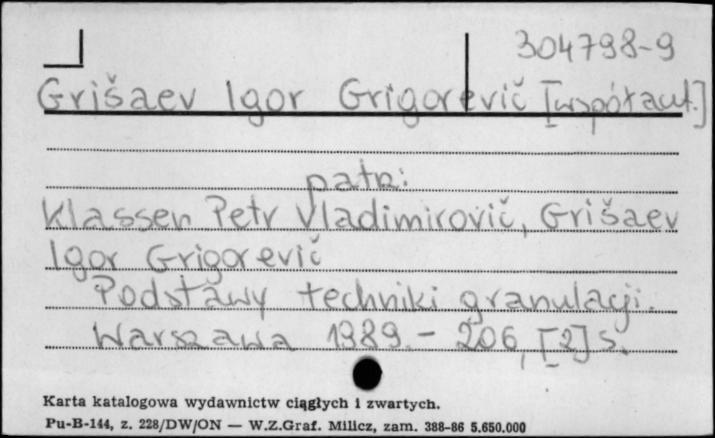 304798-9
Grišaev Igor Grigorevič [współaut.]
patrz:
Klassen Petr Vladimirovič, Grišaev
Igor Grigorevič
Podstawy techniki granulacji.
Warszawa 1989. - 206, [2] s.
Karta katalogowa wydawnictw ciągłych i zwartych.
Pu-B-144, z. 228/DW/ON — W.Z.Graf. Milicz, zam. 388-86 5.650.000